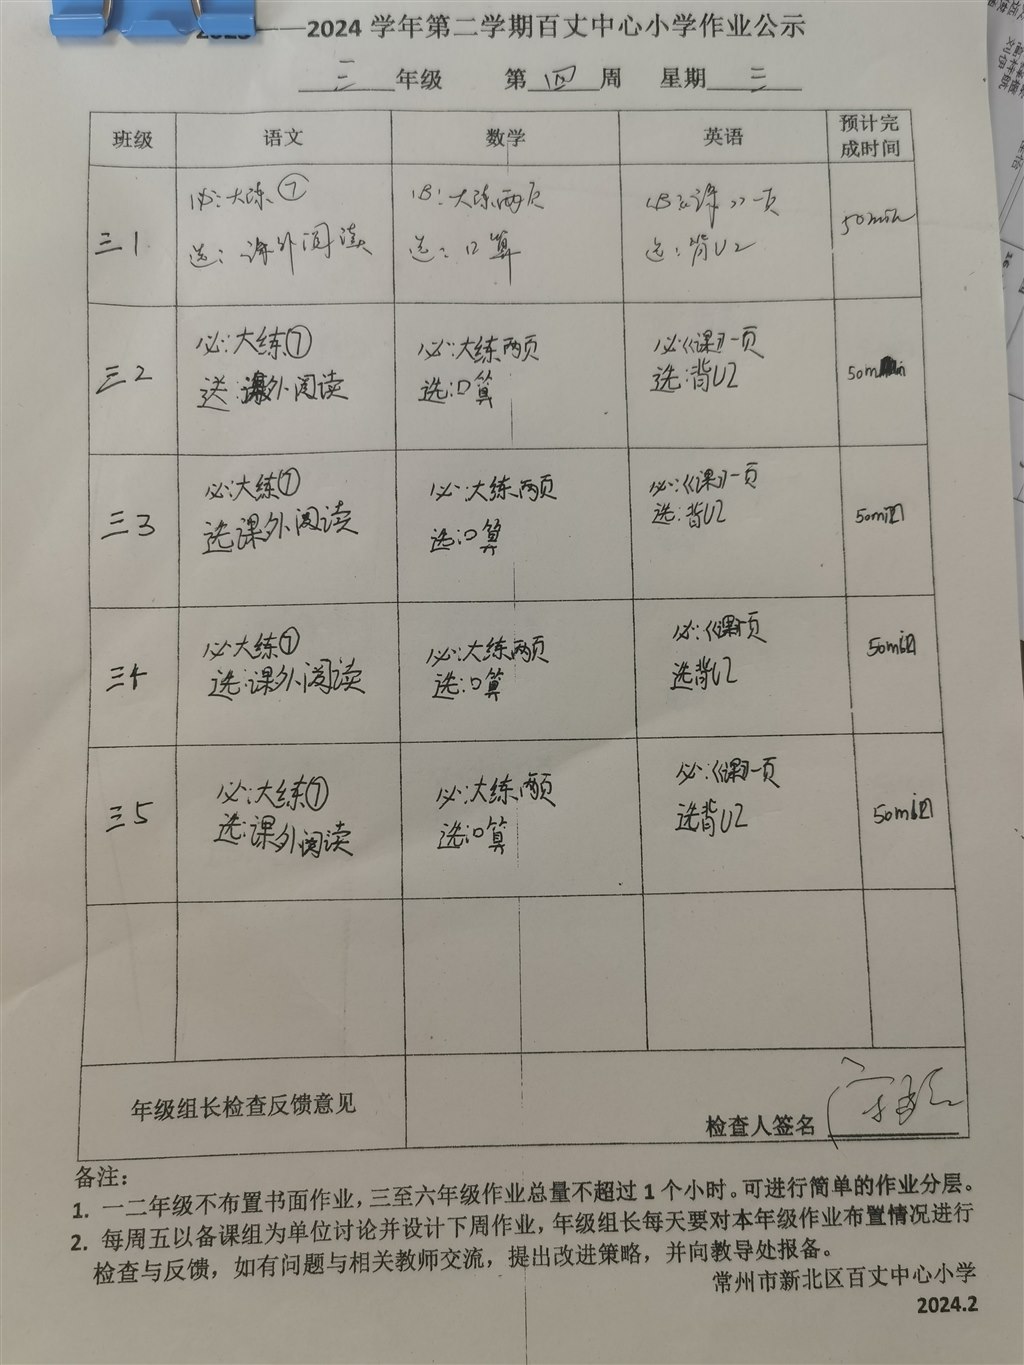 ——2024 学年第二学期百丈中心小学作业公示
三 年级 第 四 周 星期 三
班级 语文 数学 英语 预计完成时间
三1
必:大练⑦
选:课外阅读
必:大练两页
选:口算
必《课》一页
选:背U2
50min
三2
必:大练⑦
选:课外阅读
必:大练两页
选:口算
必:《课》一页
选:背U2
50min
三3
必:大练⑦
选课外阅读
必:大练两页
选:口算
必:《课》一页
选:背U2
50min
三4
必大练⑦
选:课外阅读
必:大练两页
选:口算
必:《课》一页
选背U2
50min
三5
必:大练⑦
选:课外阅读
必:大练两页
选:口算
必:《课》一页
选背U2
50min
年级组长检查反馈意见
检查人签名
备注:
1. 一二年级不布置书面作业，三至六年级作业总量不超过 1 个小时。可进行简单的作业分层。
2. 每周五以备课组为单位讨论并设计下周作业，年级组长每天要对本年级作业布置情况进行
检查与反馈，如有问题与相关教师交流，提出改进策略，并向教导处报备。
常州市新北区百丈中心小学
2024.2